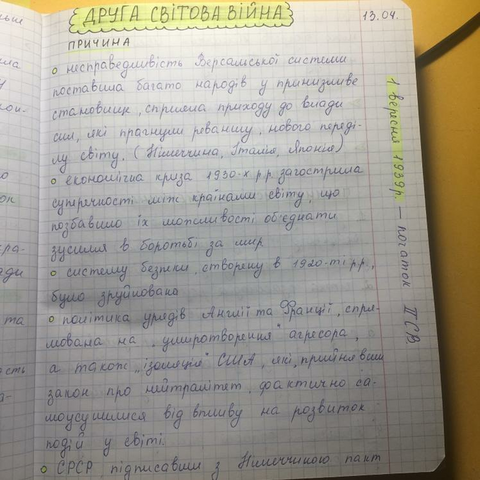 ДРУГА СВІТОВА ВІЙНА
13.04.
ПРИЧИНА
○ несправедливість Версальської системи
поставила багато народів у принизливе
становище, сприяла приходу до влади
сил, які прагнули реваншу, нового переді-
лу світу. (Німеччина, Італія, Японія)
○ економічна криза 1930-х рр. загострила
суперечності між країнами світу, що
позбавило їх можливості об'єднати
зусилля в боротьбі за мир
○ систему безпеки, створену в 1920-ті рр.,
було зруйновано
○ політика урядів Англії та Франції, спря-
мована на „умиротворення" агресора,
а також „ізоляція" США, які, прийнявши
закон про нейтралітет, фактично са-
моусунулися від впливу на розвиток
подій у світі.
○ СРСР, підписавши з Німеччиною пакт
1 вересня 1939р. — початок ІІСВ